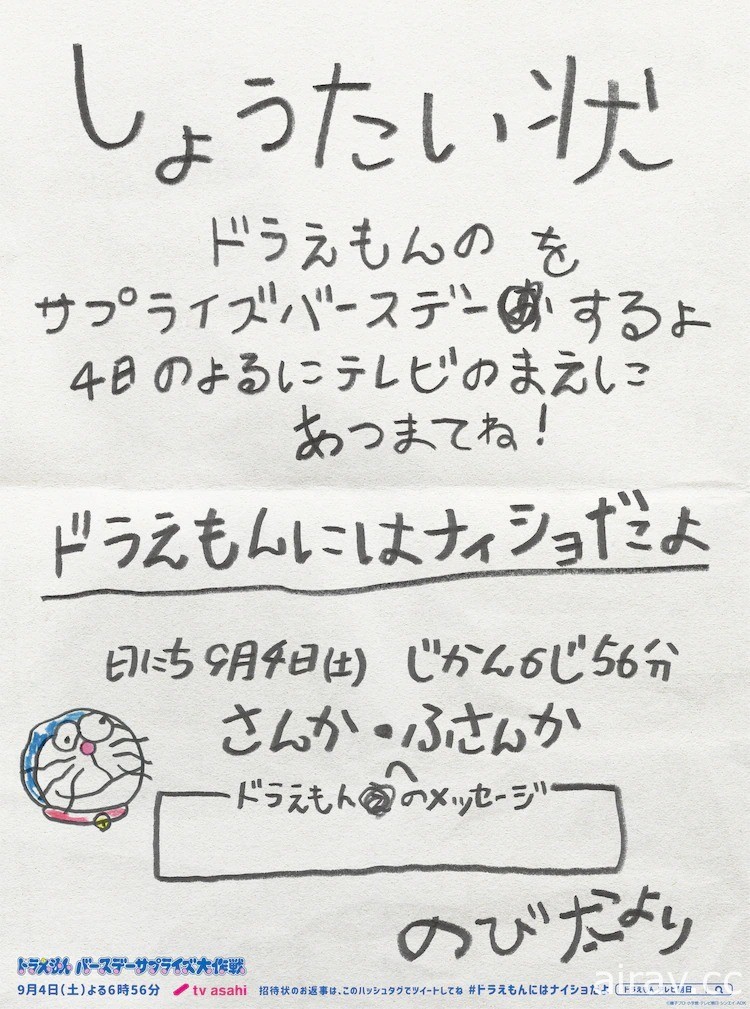 しょうたい状
ドラえもんの を
サプライズバースデー するよ
4日のよるにテレビのまえに
あつまてね!
ドラえもんにはナイショだよ
日にち 9月4日(土) じかん6じ56分
さんか・ふさんか
ドラえもん へのメッセージ
のびたより
ドラえもん バースデーサプライズ大作戦
9月4日(土)よる6時56分 tv asahi 招待状のお返事は、このハッシュタグでツイートしてね #ドラえもんにはナイショだよ
airav.cc